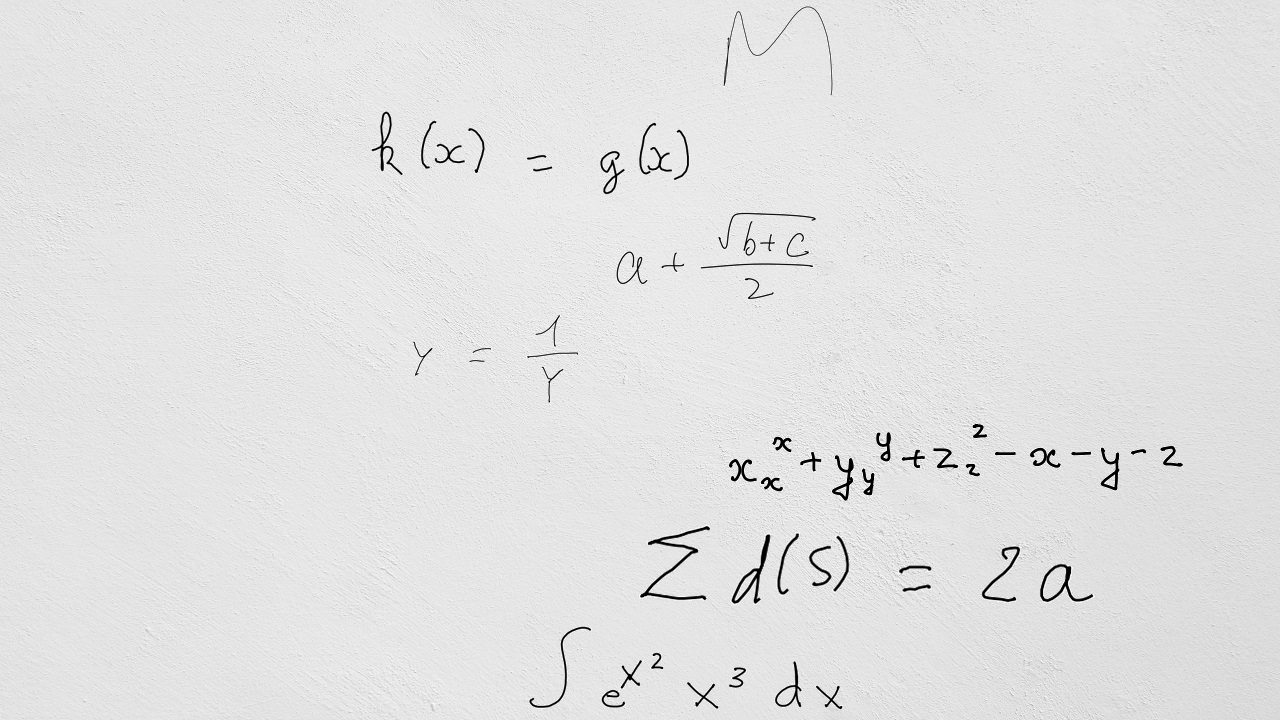 M
k(x) = g(x)
a + \frac{\sqrt{b+c}}{2}
y = \frac{1}{y}
x_x^x + y_y^y + z_z^z - x - y - z
\sum d(s) = 2a
\int e^{x^2} x^3 dx